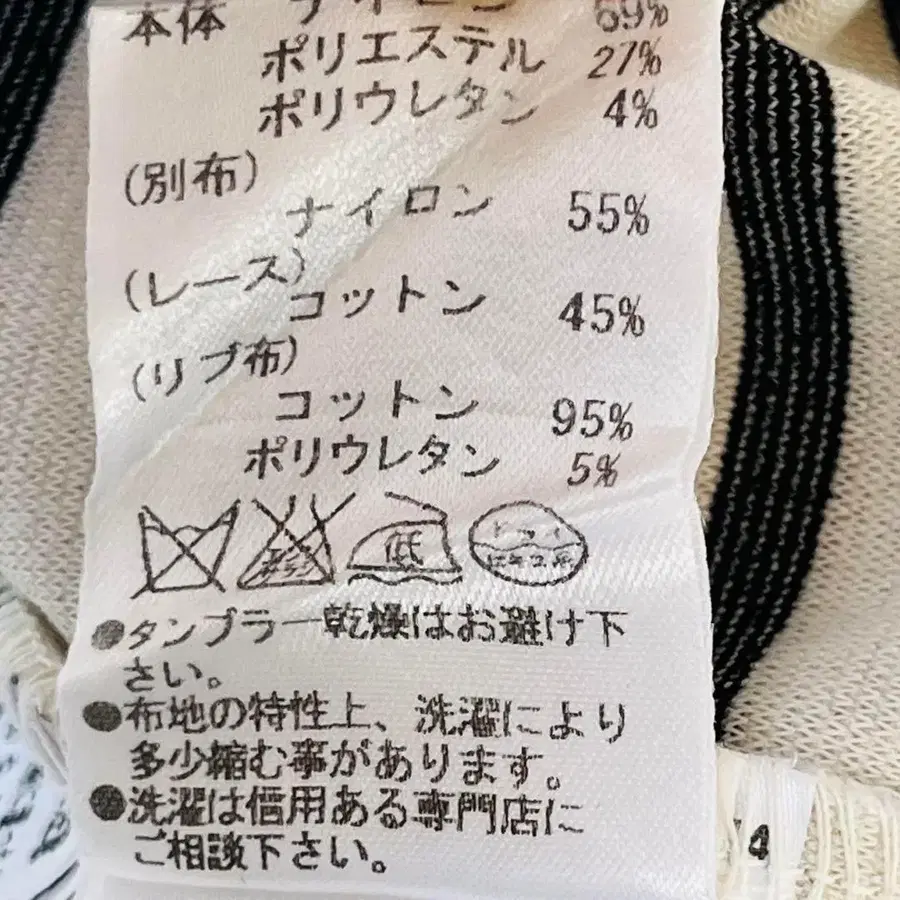 本体 ナイロン 69%
ポリエステル 27%
ポリウレタン 4%
(別布)
ナイロン 55%
(レース)
コットン 45%
(リブ布)
コットン 95%
ポリウレタン 5%
エンソサラシ 低 ドライ セキユ系
●タンブラー乾燥はお避け下
さい。
●布地の特性上、洗濯により
多少縮む事があります。
●洗濯は信用ある専門店に
ご相談下さい。
14